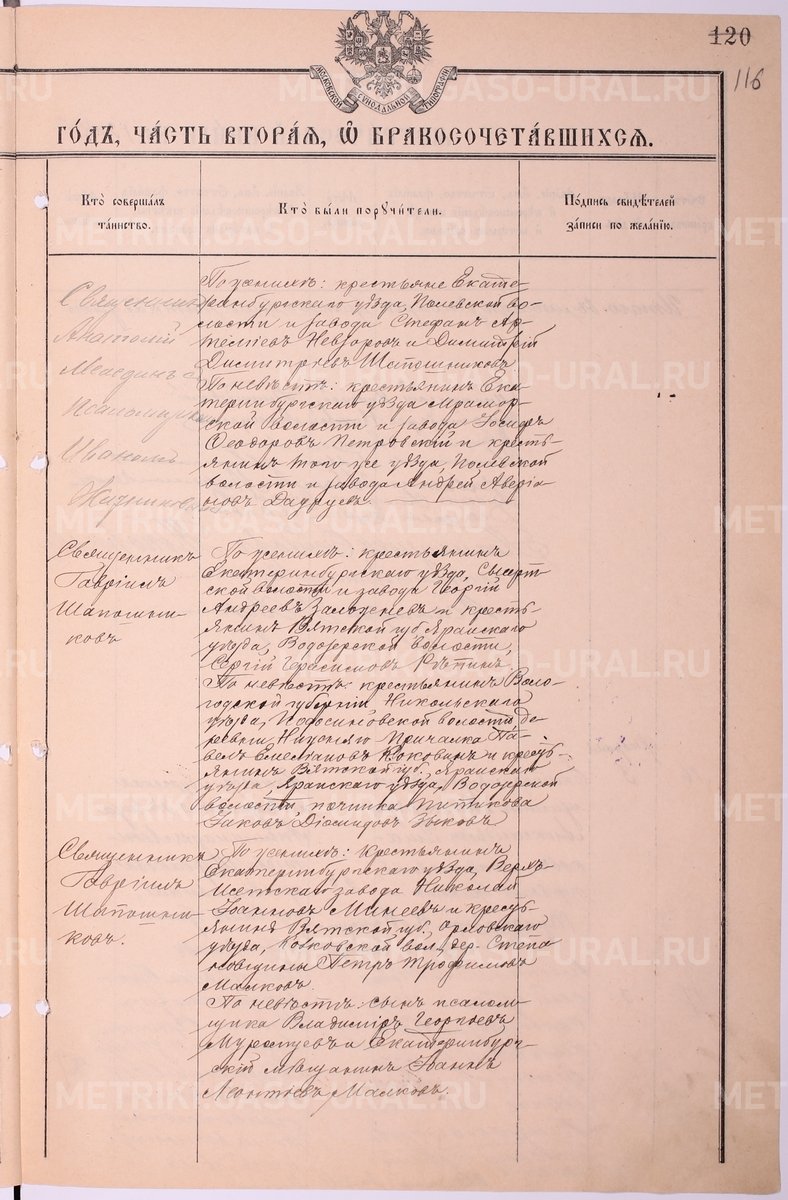 120
116
МОСКОВСКОЙ СѴНОДАЛЬНОЙ ТИПОГРАФІИ
ГО́ДЪ, ЧА́СТЬ ВТОРА́Я, Ѽ БРАКОСОЧЕТА́ВШИХСЯ.
Кто̀ соверша́лъ
та́инство.
Кто̀ бы́ли порꙋчи́тели.
По́дпись свидѣ́телей
за́писи по жела́нїю.
Священникъ
Анатолій
съ
Псаломщикомъ
Иваномъ
По женихѣ: крестьяне Екате-
ринбургскаго уѣзда, Полевской во-
лости и завода Стефанъ Ар-
теміевъ Невзоровъ и Димитрій
Димитріевъ Шапошниковъ
По невѣстѣ: крестьянинъ Ека-
теринбургскаго уѣзда Мрамор-
ской волости и завода Іосифъ
Ѳеодоровъ Петровскій и кресть-
янинъ того же уѣзда, Полевской
волости и завода Андрей Аверіа-
новъ
Священникъ
Гавріилъ
Шапошни-
ковъ
По женихѣ: крестьянинъ
Екатеринбургскаго уѣзда, Сысерт-
ской волости и завода Георгій
Андреевъ и кресть-
янинъ Вятской губ. Яранскаго
уѣзда, Водозерской волости,
Сергій Герасимовъ Рѣпинъ.
По невѣстѣ: крестьянинъ Воло-
годской губерніи Никольскаго
уѣзда, Подосиновской волости, де-
ревни Нижняго Причалка Па-
велъ Емеліановъ Коковинъ и кресть-
янинъ Вятской губ., Яранскаго
уѣзда, Яранскаго уѣзда, Водозерской
волости, починка
Іаковъ Діомидовъ Зыковъ
Священникъ
Гавріилъ
Шапошни-
ковъ.
По женихѣ: крестьянинъ
Екатеринбургскаго уѣзда, Верхъ
Исетскаго завода Николай
Іоанновъ Минеевъ и кресть-
янинъ Вятской губ., Орловскаго
уѣзда, вол., дер. Степа
новщины Петръ Трофимовъ
Малковъ.
По невѣстѣ: сынъ псалом-
щика Владиміръ Георгіевъ
и Екатеринбург-
скій мѣщанинъ Іоаннъ
Леонтіевъ Малковъ.
METRIKI.GASO-URAL.RU